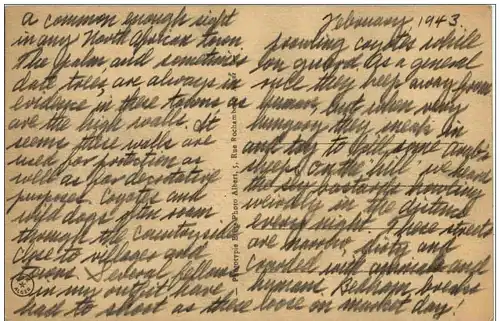 a common enough sight
in any North African town
The palm and sometimes
date trees are always in
evidence in these towns as
are the high walls. It
seems these walls are
used for protection as
well as for decorative
purposes. Coyotes and
wild dogs often roam
through the countryside
close to villages and
towns. Several fellows
in my outfit have
had to shoot at these
Phototypie Photo Albert, 5, Rue Rochambeau
February, 1943
prowling coyotes while
on guard. As a general
rule they keep away from
humans, but when very
hungry they sneak in
and try to
sheep. On the hill, we hear
the howling
weirdly in the distance
every night. These streets
are narrow, dirty and
crowded with animals and
humans. Bedlam breaks
loose on market day!